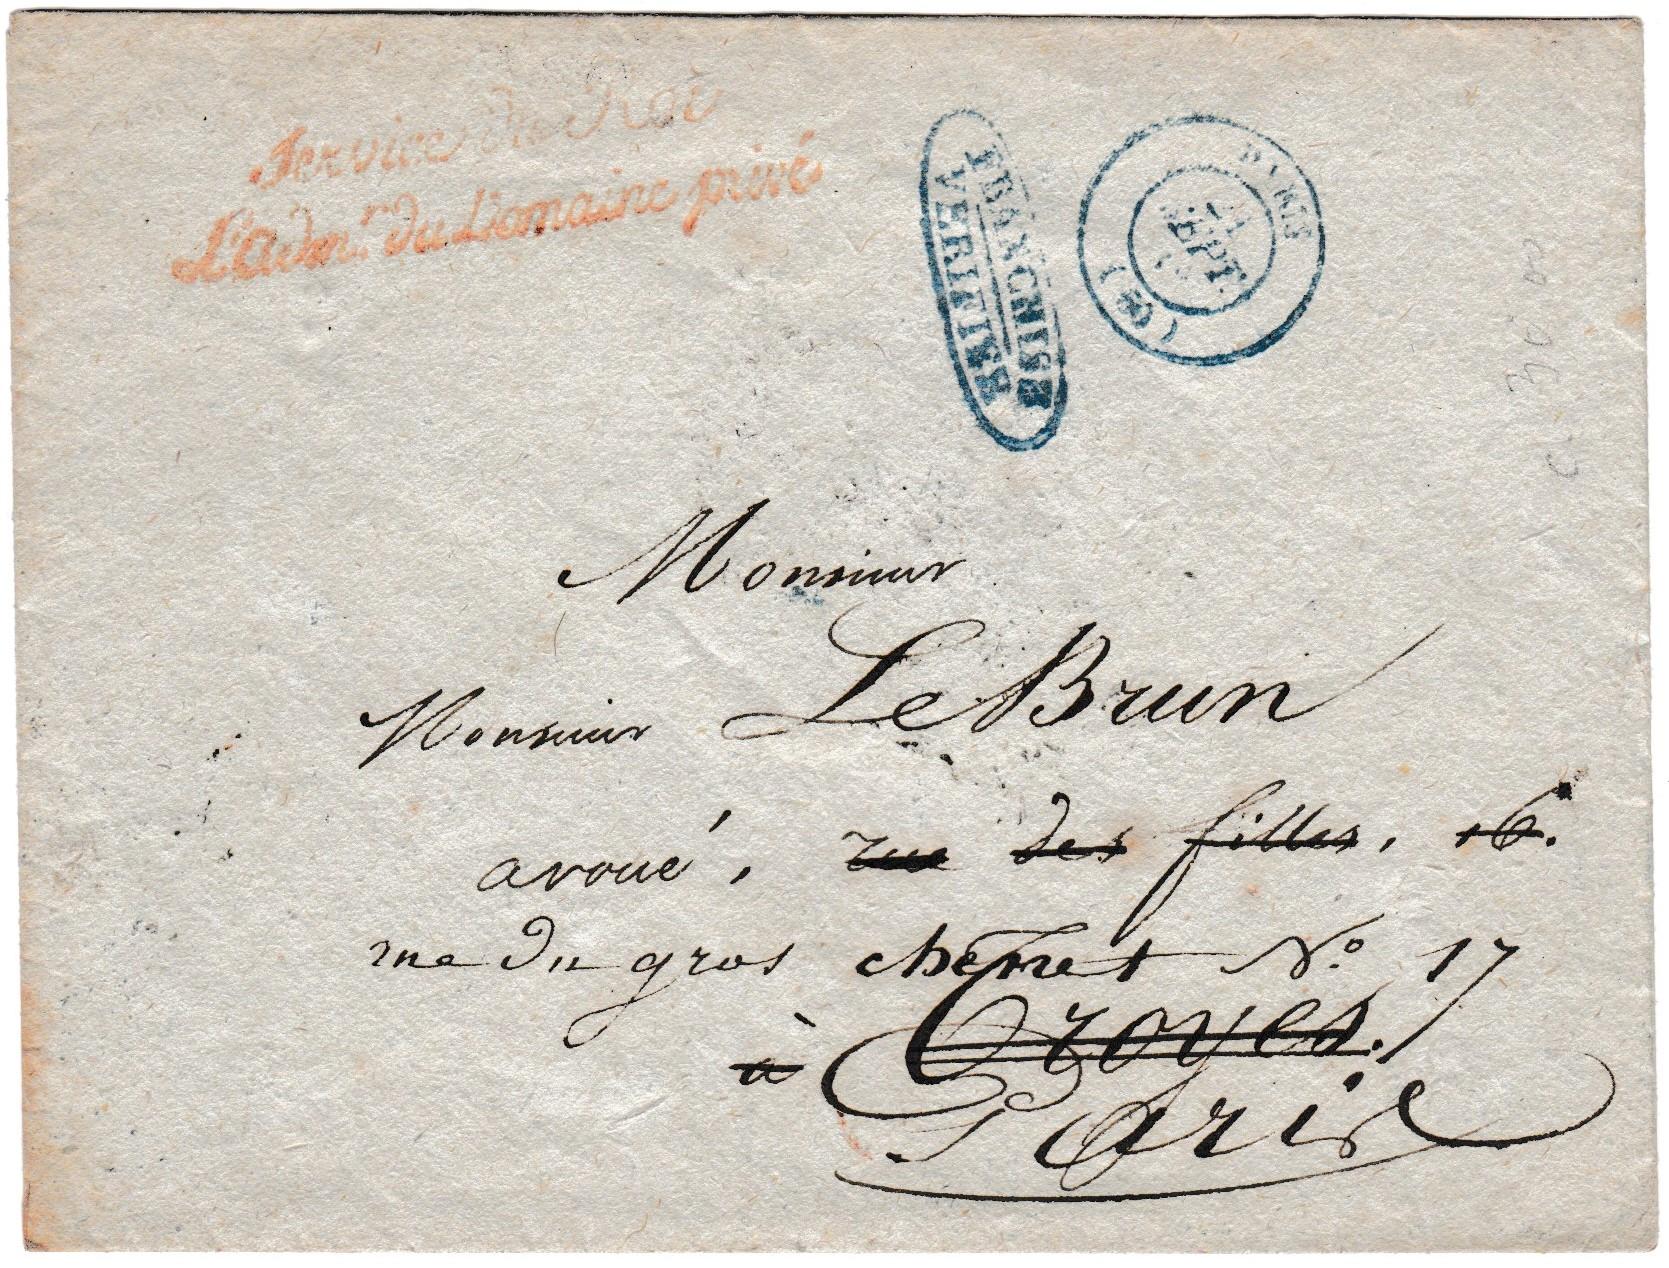 Service du Roi
L'adm.r du Domaine privé
FRANCHISE
VERIFIEE
PARIS
SEPT.
(60)
Monsieur
Monsieur Le Brun
avoué, rue des filles, 16.
rue du gros chenet No. 17
à Troyes.
Paris